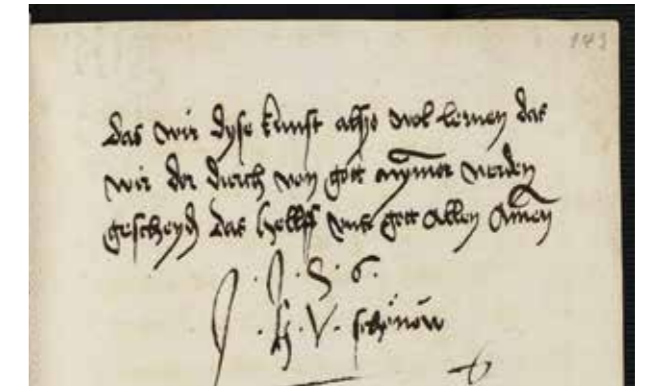 143
das wir dyse kunst also wol lernen das
wir dar durch von gott nymer werden
gescheyd das helff uns gott allen Amen
J. J. S. 6.
H. V. schönow